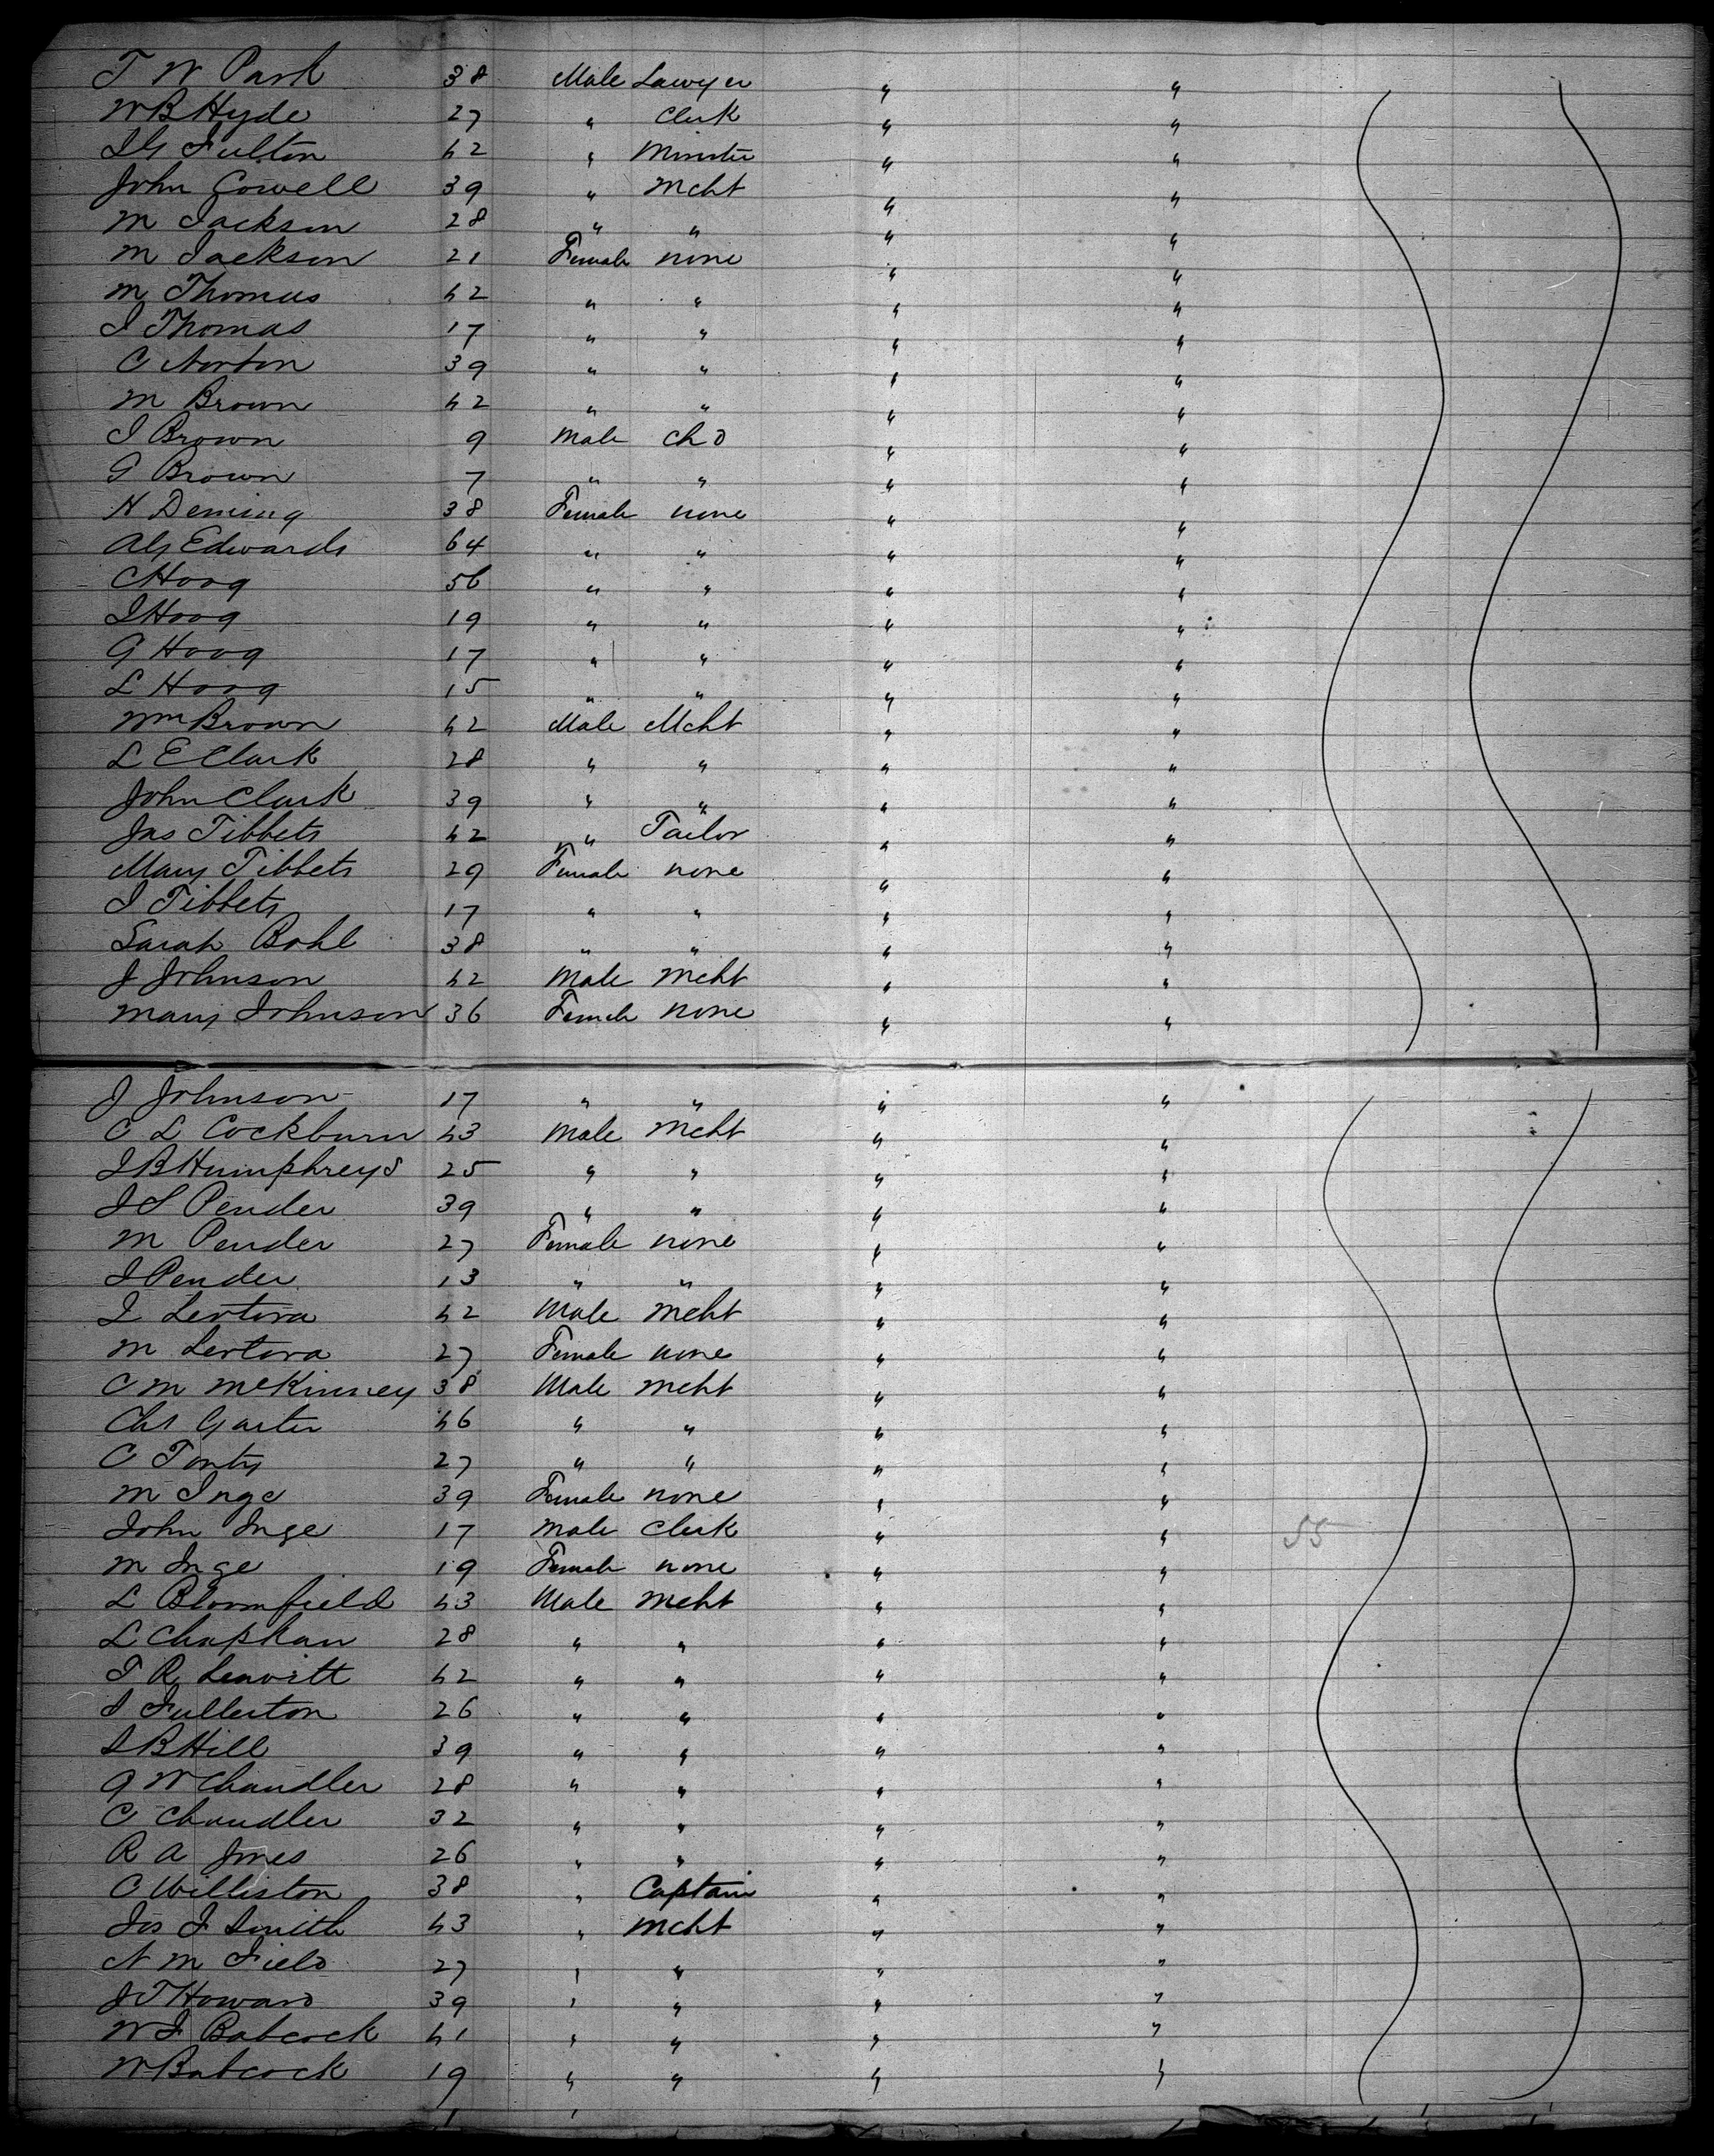 T W Park 38 Male Lawyer " "
W B Hyde 27 " Clerk " "
Fulton 42 " Minister " "
John Cowell 39 " Mcht " "
M Jackson 28 " " " "
M Jackson 21 Female none " "
M Thomas 42 " " " "
J Thomas 17 " " " "
C Norton 39 " " " "
M Brown 42 " " " "
J Brown 9 Male chd " "
G Brown 7 " " " "
H Deming 38 Female none " "
Edwards 64 " " " "
C Hoog 56 " " " "
J Hoog 19 " " " "
G Hoog 17 " " " "
L Hoog 15 " " " "
Wm Brown 42 Male Mcht " "
L E Clark 28 " " " "
John Clark 39 " " " "
Jas Tibbets 42 " Tailor " "
Mary Tibbets 29 Female none " "
J Tibbets 17 " " " "
Sarah Bohl 38 " " " "
J Johnson 42 Male Mcht " "
Mary Johnson 36 Female none " "
J Johnson 17 " " " "
C L Cockburn 43 Male Mcht " "
J B Humphreys 25 " " " "
J S Pender 39 " " " "
M Pender 27 Female none " "
J Pender 13 " " " "
Lertora 42 Male Mcht " "
M Lertora 27 Female none " "
C M McKinney 38 Male Mcht " "
Chs Garter 46 " " " "
C 27 " " " "
M Inge 39 Female none " "
John Inge 17 Male Clerk " " 55
M Inge 19 Female none " "
L Bloomfield 43 Male Mcht " "
L 28 " " " "
T R Leavitt 42 " " " "
Fullerton 26 " " " "
S B Hill 39 " " " "
G W Chandler 28 " " " "
C Chandler 32 " " " "
R A Jones 26 " " " "
C Williston 38 " Captain " "
Jos J Smith 43 " Mcht " "
N M Field 27 " " " "
J T Howard 39 " " " "
W F Babcock 41 " " " "
W Babcock 19 " " " "